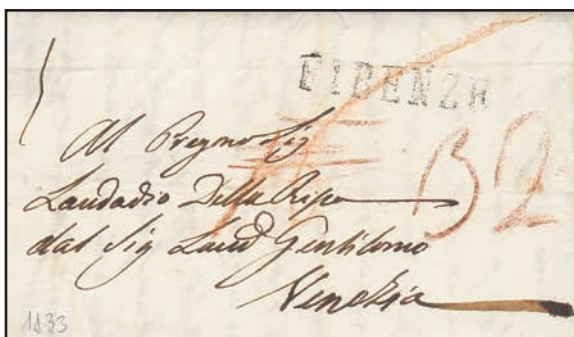 FIRENZE
Al Pregmo Sig
Laudadio Della Ripa
32
dal Sig Laudo Gentilomo
Venezia
1833